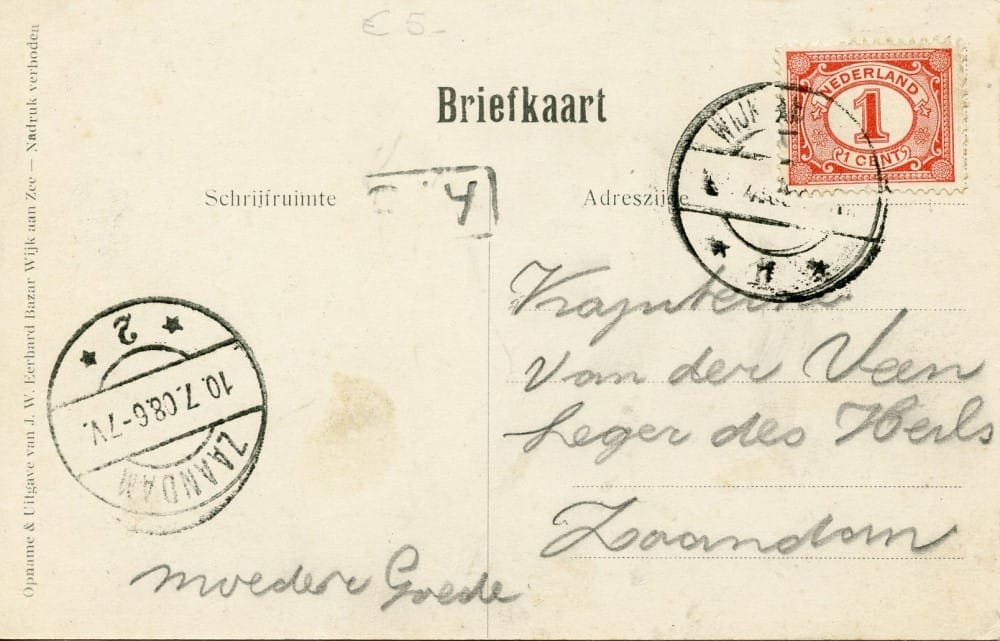 € 5-
Briefkaart
NEDERLAND
1
1 CENT
WIJK
Schrijfruimte
4
Adreszijde
van der Veen
Leger des Heils
Zaandam
2
10.7.08.6-7V.
ZAANDAM
moeder Goede
Opname & Uitgave van J. W. Eerhard Bazar Wijk aan Zee — Nadruk verboden